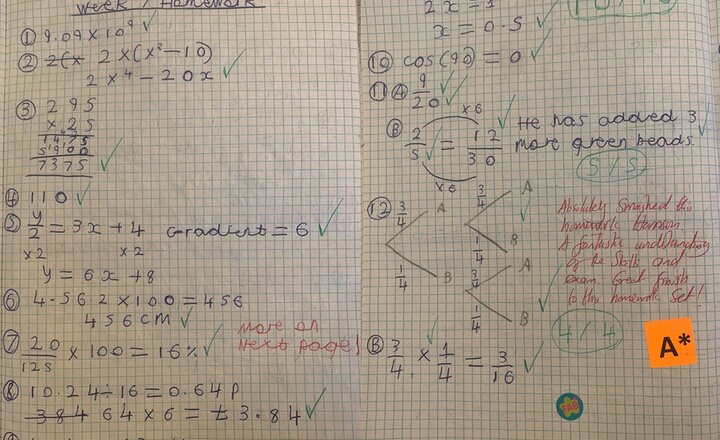 Week 7 Homework
① 9.09 × 10⁹ ✓
② 2 × (x³ - 10)
2x⁴ - 20x ✓
③ 295
× 25
1475
5900
7375 ✓
④ 110 ✓
⑤ y/2 = 3x + 4 Gradient = 6 ✓
×2 ×2
y = 6x + 8
⑥ 4.56.2 × 100 = 456
456 CM ✓
⑦ 20/125 × 100 = 16% ✓
More on
Next page!
⑧ 10.24 ÷ 16 = 0.64p
384 64 × 6 = £3.84 ✓
2x = 1
x = 0.5 ✓
⑩ cos(90) = 0 ✓
⑪ Ⓐ 9/20 ✓
×6
Ⓑ 2/5 ✓ = 12/30 ✓ He has added 3
more green beads. ✓
×6
5/5
⑫ 3/4 A 3/4 A
1/4 B
1/4 B 3/4 A
1/4 B
Absolutely Smashed this
homework Harrison.
A fantastic understanding
of the Skills and
exam. Great finish
to this homework Set!
4/4
A*
Ⓑ 3/4 × 1/4 = 3/16 ✓